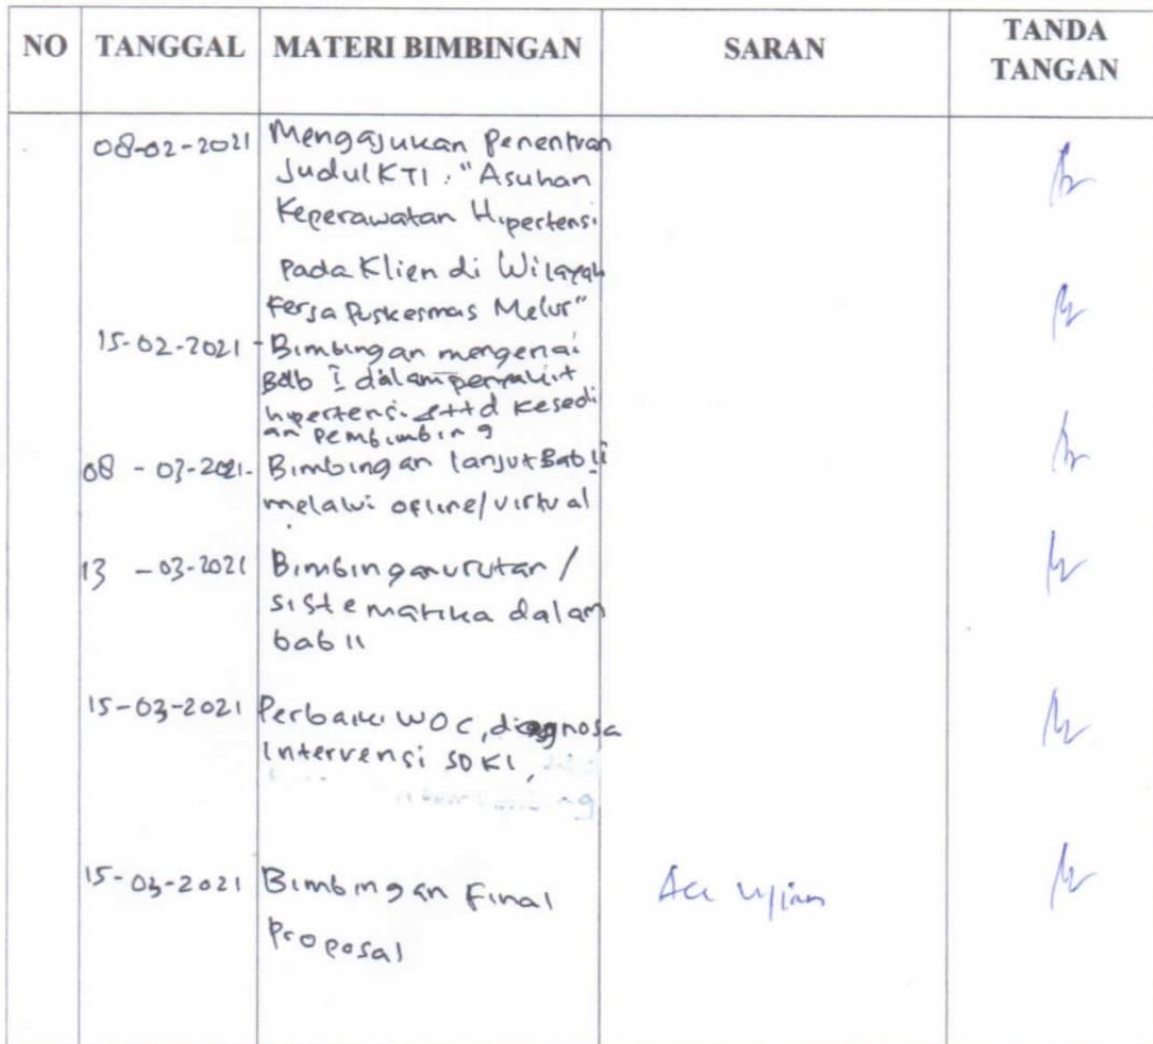 NO TANGGAL MATERI BIMBINGAN SARAN TANDA TANGAN
08-02-2021 Mengajukan Penentuan
Judul KTI : "Asuhan
Keperawatan Hipertensi
Pada Klien di Wilayah
Kerja Puskesmas Melur"
15-02-2021 - Bimbingan mengenai
Bab I dalam penyakit
hipertensi. & ttd kesedi
an pembimbing
08 - 03-2021 - Bimbingan lanjut Bab II
melalui ofline/virtual
13 - 03-2021 Bimbingan urutan /
sistematika dalam
bab II
15-03-2021 Perbaiki WOC, diagnosa
Intervensi SDKI,
15-03-2021 Bimbingan Final Acc Ujian
Proposal